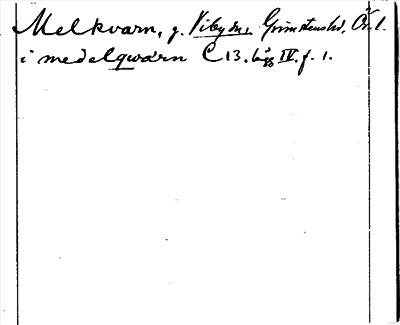 Melkvarn, g. Viby sn, Grimstens hd, Ör. l.
i medelqwarn C 13. lägg IV. f. 1.